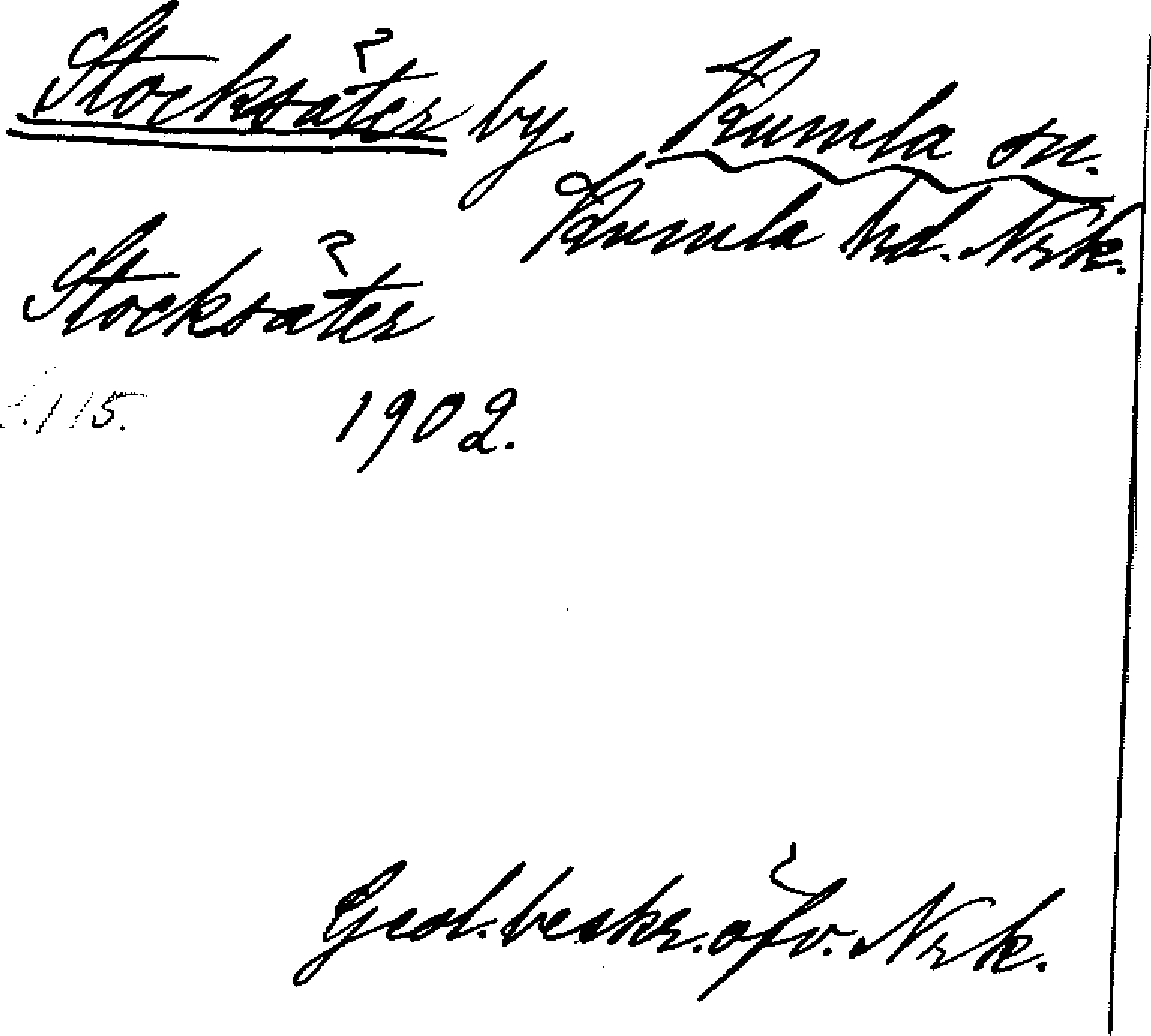 Stocksäter by. Kumla sn.
Kumla hd. Nrk.
Stocksäter
s.115. 1902.
Geol. beskr. öfv. Nrk.